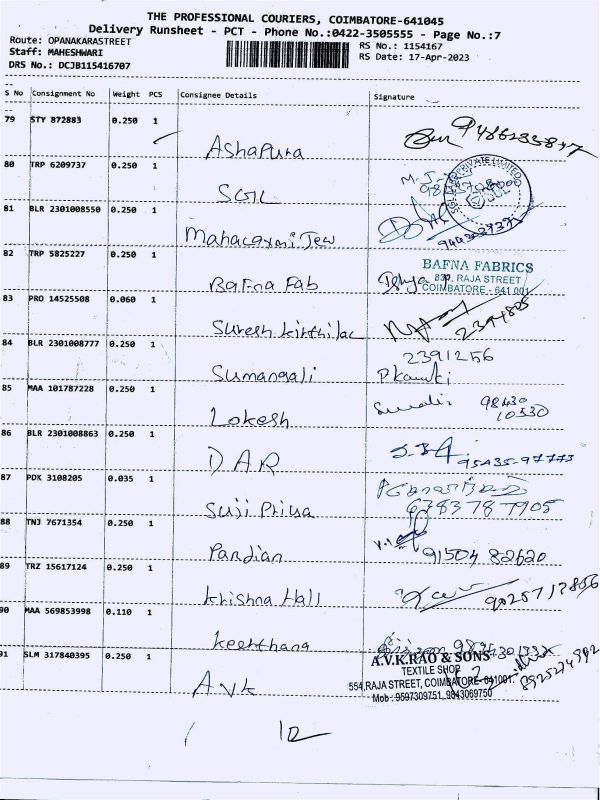 THE PROFESSIONAL COURIERS, COIMBATORE-641045
Delivery Runsheet - PCT - Phone No.:0422-3505555 - Page No.:7
Route: OPANAKARASTREET
Staff: MAHESHWARI
DRS No.: DCJB115416707
RS No.: 1154167
RS Date: 17-Apr-2023
S No Consignment No Weight PCS Consignee Details Signature
79 STY 872883 0.250 1
Ashapura
80 TRP 6209737 0.250 1
SGIL
81 BLR 2301008550 0.250 1
Mahalaxmi Jew
82 TRP 5825227 0.250 1
BAFNA FABRICS
Bafna Fab
83B, RAJA STREET
COIMBATORE - 641 001
83 PRO 14525508 0.060 1
Suresh
2394805
84 BLR 2301008777 0.250 1
2391256
Sumangali
85 MAA 101787228 0.250 1
Lokesh
98430
10530
86 BLR 2301008863 0.250 1
DAR
95435-97773
87 PDK 3108205 0.035 1
Suji Priya
6383787905
88 TNJ 7671354 0.250 1
Pardian
91504 82620
89 TRZ 15617124 0.250 1
Krishna Hall
90 MAA 569853998 0.110 1
Keerthana
91 SLM 317840395 0.250 1
A.V.K.RAO & SONS
TEXTILE SHOP
AVK
554,RAJA STREET, COIMBATORE-641001.
Mob : 9597309751, 9843069750